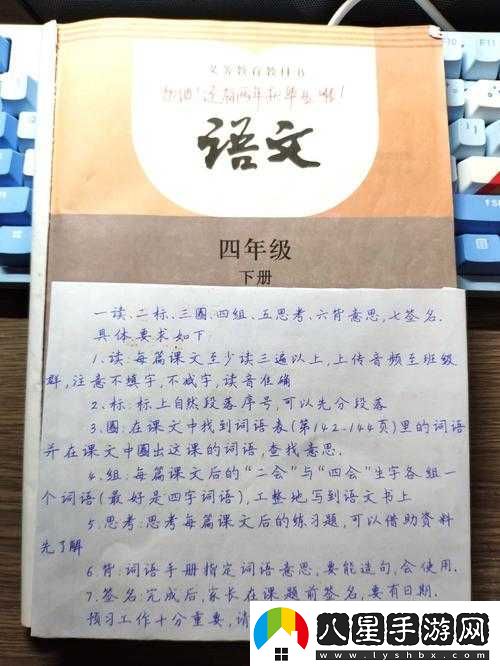 义务教育教科书
加油!还有两年就毕业啦!
语文
四年级
下册
一读、二标、三圈、四组、五思考、六背意思,七签名.
具体要求如下
1.读:每篇课文至少读三遍以上,上传音频至班级
群,注意不填字,不减字,读音准确
2.标:标上自然段落序号,可以先分段落
3.圈:在课文中找到词语表(第142-144页)里的词语
并在课文中圈出这课的词语,查找意思.
4.组:每篇课文后的“二会”与“四会”生字各组一
个词语(最好是四字词语),工整地写到语文书上
5.思考:思考每篇课文后的练习题,可以借助资料
先了解
6.背:词语手册指定词语意思,要能造句,会使用.
7.签名:完成后,家长在课题前签名,要有日期.
预习工作十分重要,请
八星手游网
www.lyshbx.com
F10
F11